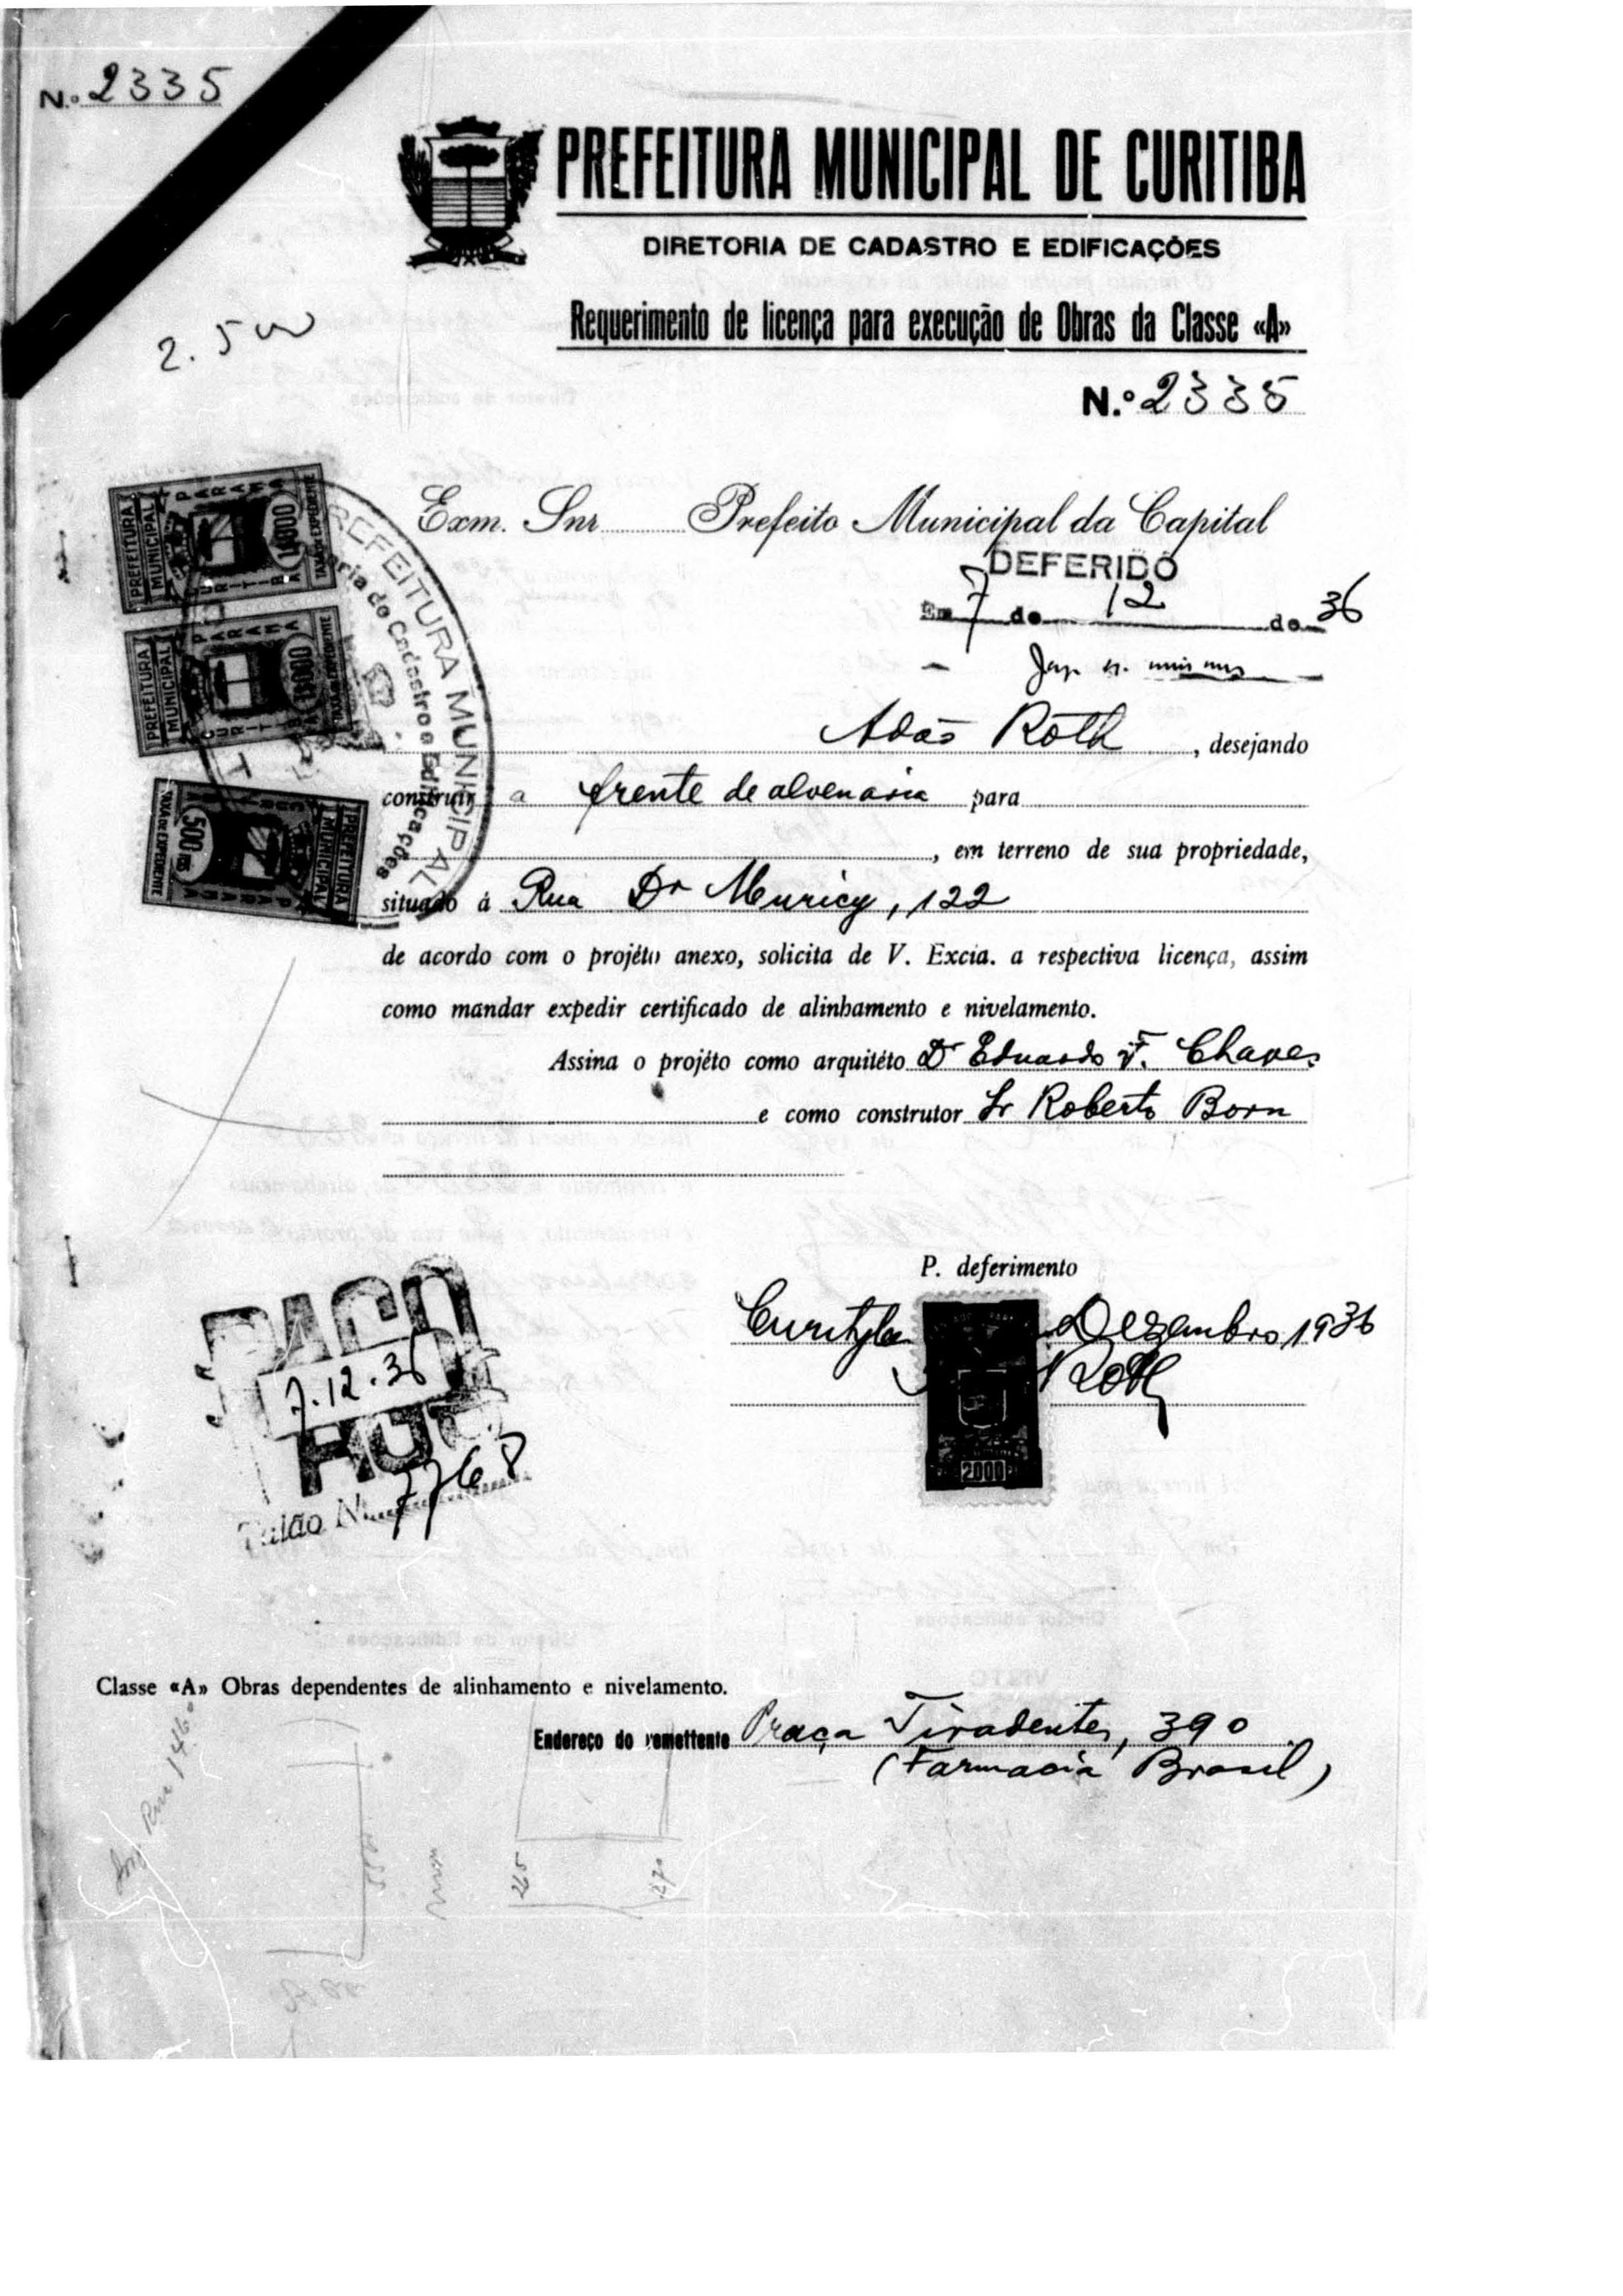 N.o 2335
PREFEITURA MUNICIPAL DE CURITIBA
DIRETORIA DE CADASTRO E EDIFICAÇÕES
Requerimento de licença para execução de Obras da Classe «A»
2.500
N.o 2335
Exm. Snr Prefeito Municipal da Capital
DEFERIDO
Em 7 de 12 de 36
PREFEITURA MUNICIPAL
CURITIBA
PARANÁ
1$000
TAXA DE EXPEDIENTE
PREFEITURA MUNICIPAL
CURITIBA
PARANÁ
1$000
TAXA DE EXPEDIENTE
PREFEITURA MUNICIPAL
PARANÁ
500 RS
TAXA DE EXPEDIENTE
PREFEITURA MUNICIPAL
de Cadastro e Edificações
Adão Roth, desejando
construir a frente de alvenaria para
, em terreno de sua propriedade,
situado á Rua Dr Muricy, 122
de acordo com o projéto anexo, solicita de V. Excia. a respectiva licença, assim
como mandar expedir certificado de alinhamento e nivelamento.
Assina o projéto como arquitéto Dr Eduardo F. Chaves
e como construtor Sr Roberto Born
P. deferimento
Curityba Dezembro 1936
Roth
2000
PAGO
7.12.36
Talão N. 7768
Classe «A» Obras dependentes de alinhamento e nivelamento.
Endereço do remettente Praça Tiradentes, 390
(Farmacia Brasil)
265
270